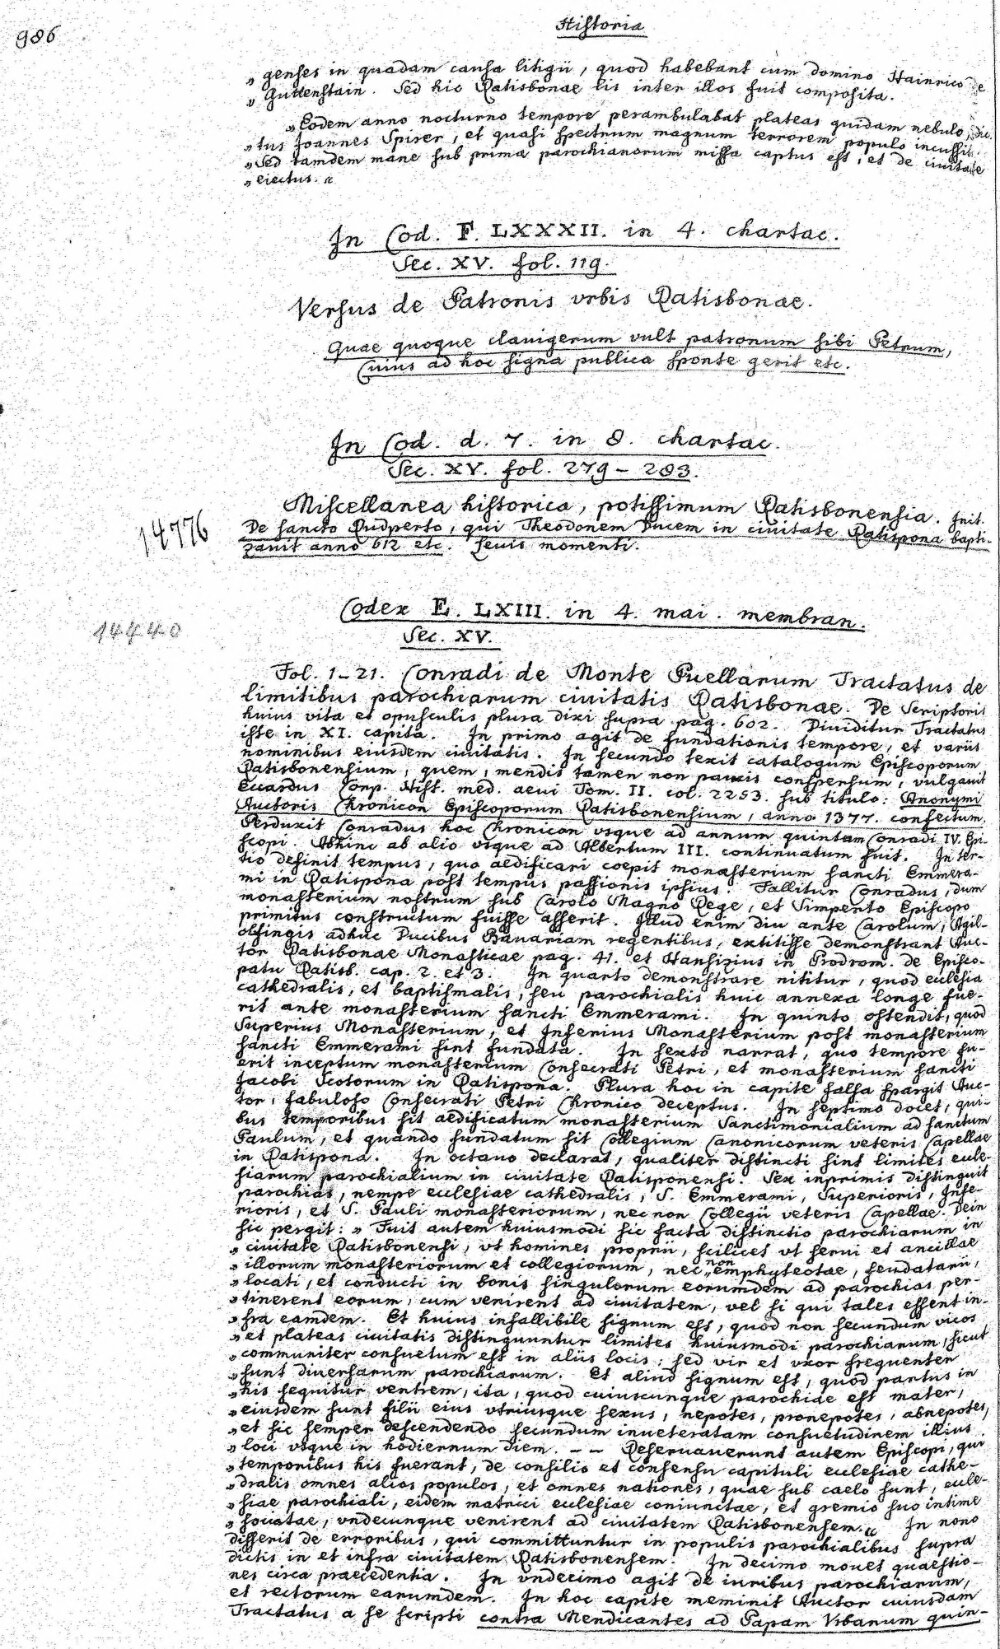 986
Historia
„ genses in quadam causa litigii, quod habebant cum domino Hainrico de
„ Guttenstain. Sed hic Ratisbonae lis inter illos fuit composita.
„ Eodem anno nocturno tempore perambulabat plateas quidam nebulo, dic-
„ tus Joannes Spirer, et quasi spectrum magnum terrorem populo incussit.
„ Sed tamdem mane sub prima parochianorum missa captus est, et de ciuitate
„ eiectus. “
In Cod. F. LXXXII. in 4. chartac.
Sec. XV. fol. 119.
Versus de Patronis vrbis Ratisbonae.
Quae quoque clauigerum vult patronum sibi Petrum,
Cuius ad hoc signa publica sponte gerit etc.
In Cod. d. 7. in 8. chartac.
Sec. XV. fol. 279 – 283.
Miscellanea historica, potissimum Ratisbonensia. Init.
14776
De sancto Rudperto, qui Theodonem Ducem in ciuitate Ratispona bapti-
zauit anno 612 etc. Leuis momenti.
Codex E. LXIII. in 4. mai. membran.
14440
Sec. XV.
Fol. 1–21. Conradi de Monte Puellarum Tractatus de
limitibus parochiarum ciuitatis Ratisbonae. De Scriptoris
huius vita et opusculis plura dixi supra pag. 602. Diuiditur Tractatus
iste in XI. capita. In primo agit de fundationis tempore, et variis
nominibus eiusdem ciuitatis. In secundo texit catalogum Episcoporum
Ratisbonensium, quem, mendis tamen non paucis conspersum, vulgauit
Eccardus Corp. Hist. med. aeui Tom. II. col. 2253. sub titulo: Anonymi
Auctoris Chronicon Episcoporum Ratisbonensium, anno 1377. confectum.
Perduxit Conradus hoc Chronicon vsque ad annum quintum Conradi IV. Epi-
scopi. Abhinc ab alio vsque ad Albertum III. continuatum fuit. In ter-
tio definit tempus, quo aedificari coepit monasterium sancti Emmera-
mi in Ratispona post tempus passionis ipsius. Fallitur Conradus, dum
monasterium nostrum sub Carolo Magno Rege, et Simperto Episcopo
primitus constructum fuisse asserit. Illud enim diu ante Carolum, Agil-
olfingis adhuc Ducibus Bauariam regentibus, extitisse demonstrant Auc-
tor Ratisbonae Monasticae pag. 41. et Hansizius in Prodrom. de Episco-
patu Ratisb. cap. 2. et 3. In quarto demonstrare nititur, quod ecclesia
cathedralis, et baptismalis, seu parochialis huic annexa longe fue-
rit ante monasterium sancti Emmerami. In quinto ostendit, quod
Superius Monasterium, et Inferius Monasterium post monasterium
sancti Emmerami sint fundata. In sexto narrat, quo tempore fu-
erit inceptum monasterium Consecrati Petri, et monasterium sancti
Jacobi Scotorum in Ratispona. Plura hoc in capite falsa spargit Auc-
tor, fabuloso Consecrati Petri Chronico deceptus. In septimo docet, qui-
bus temporibus sit aedificatum monasterium Sanctimonialium ad sanctum
Paulum, et quando fundatum sit Collegium Canonicorum veteris Capellae
in Ratispona. In octauo declarat, qualiter distincti sint limites eccle-
siarum parochialium in ciuitate Ratisponensi. Sex inprimis distinguit
parochias, nempe ecclesiae cathedralis, S. Emmerami, Superioris, Infe-
rioris, et S. Pauli monasteriorum, nec non Collegii veteris Capellae. Dein
sic pergit: „ Fuit autem huiusmodi sic facta distinctio parochiarum in
„ ciuitate Ratisbonensi, vt homines proprii, scilicet vt serui et ancillae
„ illorum monasteriorum et collegiorum, nec non emphyteotae, feudatarii,
„ locati, et conducti in bonis singulorum eorumdem ad parochias per-
„ tinerent eorum, cum venirent ad ciuitatem, vel si qui tales essent in-
„ fra eamdem. Et huius infallibile signum est, quod non secundum vicos
„ et plateas ciuitatis distinguuntur limites huiusmodi parochiarum, sicut
„ communiter consuetum est in aliis locis; sed vir et vxor frequenter
„ sunt diuersarum parochiarum. Et aliud signum est, quod partus in
„ his sequitur ventrem, ita, quod cuiuscunque parochiae est mater,
„ eiusdem sunt filii eius vtriusque sexus, nepotes, pronepotes, abnepotes,
„ et sic semper descendendo secundum inueteratam consuetudinem illius
„ loci vsque in hodiernum diem. – – Reseruauerunt autem Episcopi, qui
„ temporibus his fuerant, de consilio et consensu capituli ecclesiae cathe-
„ dralis omnes alios populos, et omnes nationes, quae sub caelo sunt, eccle-
„ siae parochiali, eidem matrici ecclesiae coniunctae, et gremio suo intime
„ fouatae, vndecunque venirent ad ciuitatem Ratisbonensem. “ In nono
disserit de erroribus, qui committuntur in populis parochialibus supra
dictis in et infra ciuitatem Ratisbonensem. In decimo mouet quaestio-
nes circa praecedentia. In vndecimo agit de iuribus parochiarum,
et rectorum earumdem. In hoc capite meminit Auctor cuiusdam
Tractatus a se scripti contra Mendicantes ad Papam Vrbanum quin-